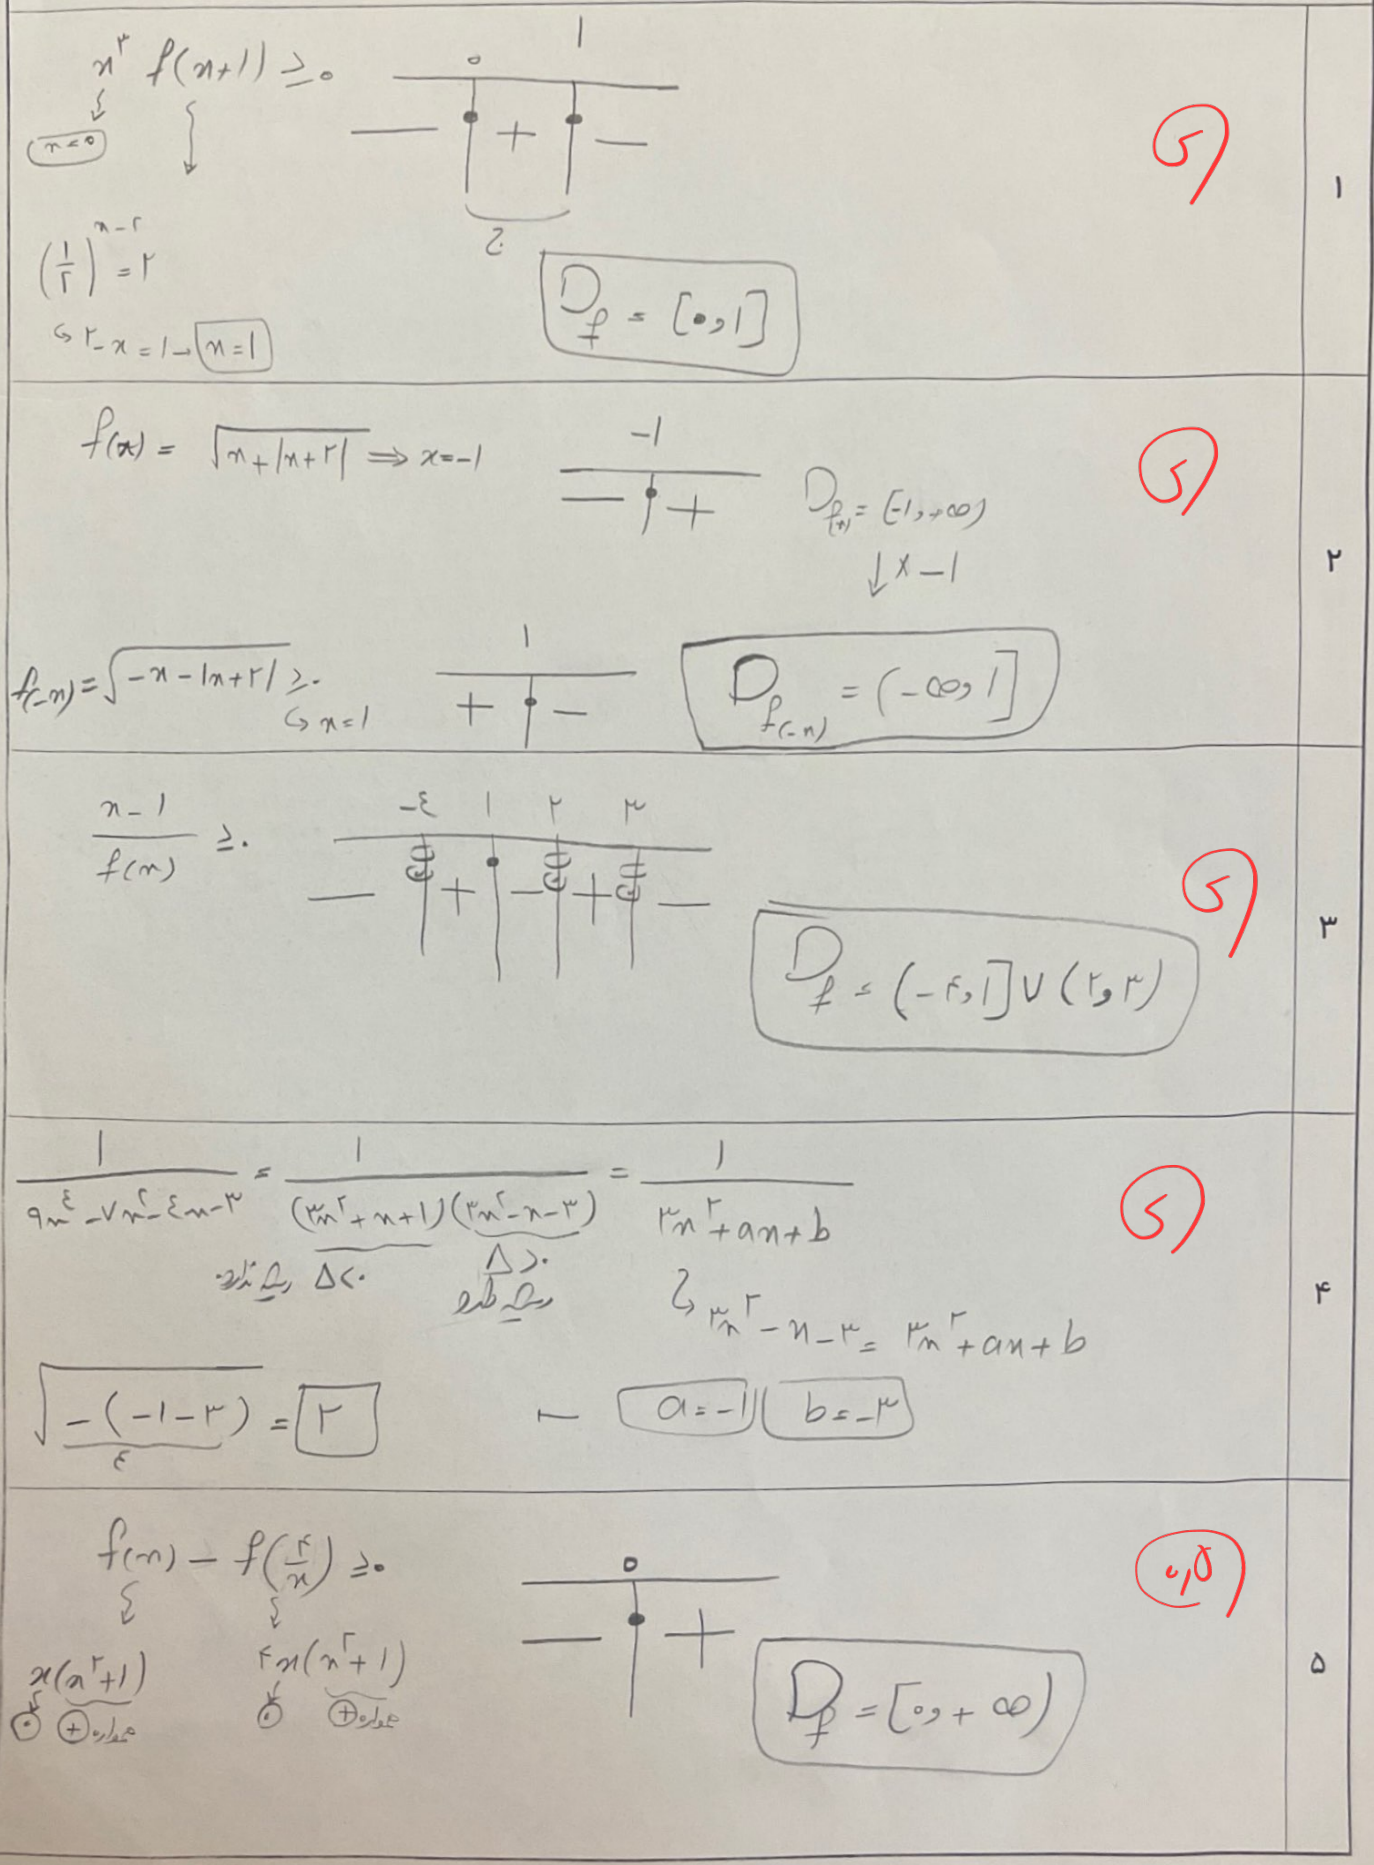 x³ f(x+1) ≥ ۰
۰ ۱
x=۰
− + −
(۱/۲)^(x-۲) = ۲
↳ ۲-x = ۱ → x=۱
D_f = [۰,۱]
۱
f(x) = √(x+|x+۲|) ⇒ x=-۱
-۱
− +
D_f(x) = [-۱,+∞)
↓ × -۱
f(-x) = √(-x-|x+۲|) ≥ ۰
↳ x=۱
۱
+ −
D_f(-x) = (-∞,۱]
۲
(x-۱)/f(x) ≥ ۰
-٤ ۱ ۲ ۳
− + − + −
D_f = (-۴,۱] ∪ (۲,۳)
۳
۱/(۹x^٤-۷x^۲-٤x-۳) = ۱/((۳x^۲+x+۱)(۳x^۲-x-۳)) = ۱/(۳x^۲+ax+b)
Δ<۰ ریشه ندارد
Δ>۰
ریشه دارد
↳ ۳x^۲-x-۳ = ۳x^۲+ax+b
a=-۱ b=-۳
√(-(-۱-۳)) = ۲
٤
۴
f(x) - f(۴/x) ≥ ۰
۰
x(x^۲+۱)
۴x(x^۲+۱)
۰ + همواره
۰ + همواره
− +
D_f = [۰,+∞)
۰,۵
۵